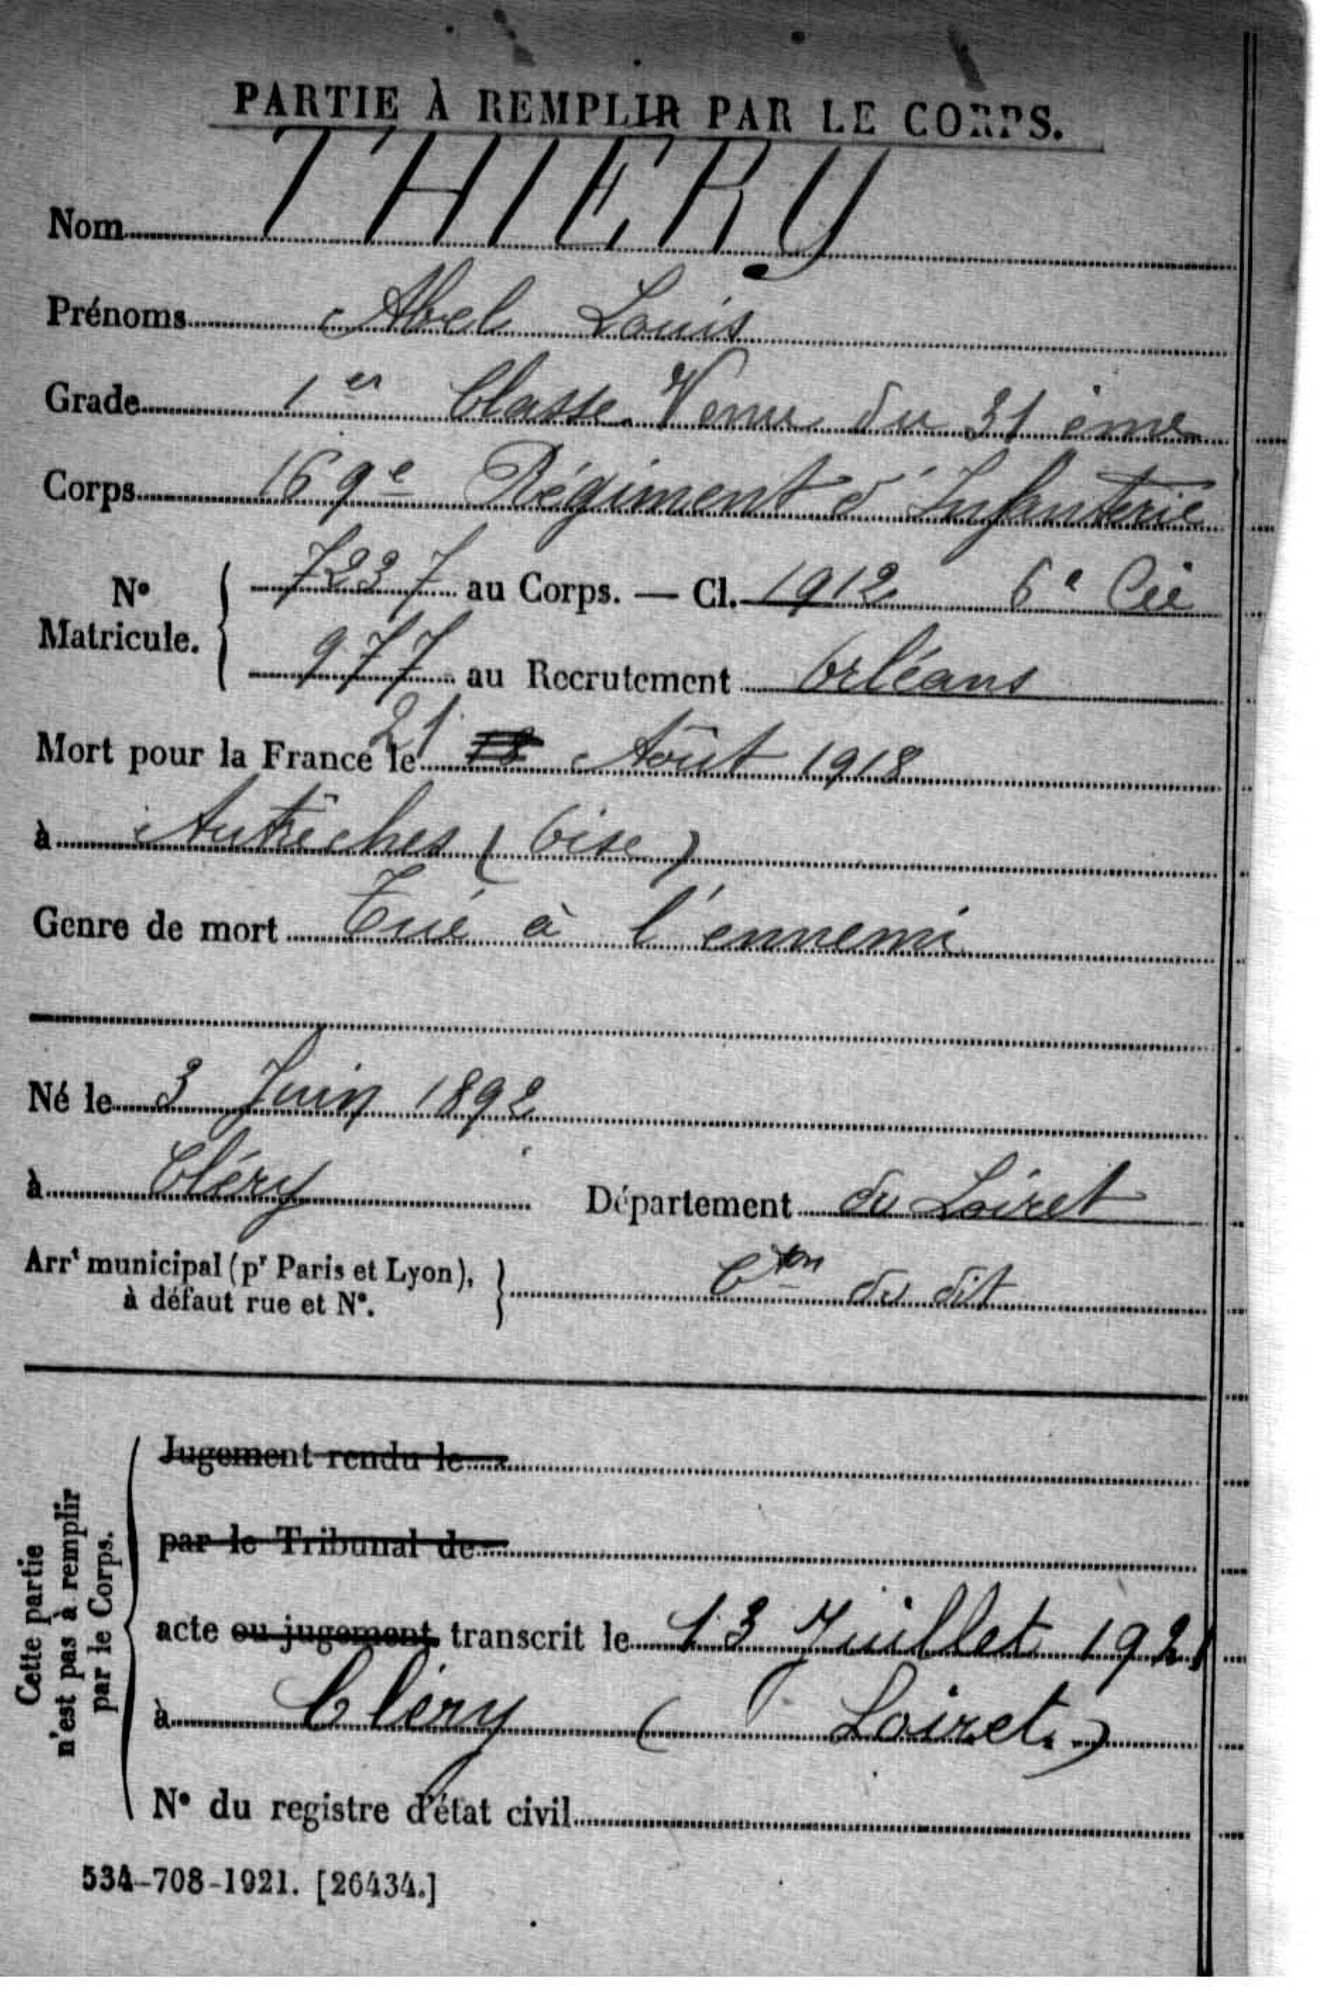 PARTIE À REMPLIR PAR LE CORPS.
Nom THIERY
Prénoms Abel Louis
Grade 1er Classe Venu du 31 ème
Corps 169e Régiment d'Infanterie
No Matricule. { 7237 au Corps. — Cl. 1912 6e Cie
977 au Recrutement Orléans
Mort pour la France le 21 18 Août 1918
à Autrêches (Oise)
Genre de mort Tué à l'ennemi
Né le 3 Juin 1892
à Cléry Département du Loiret
Arrt municipal (pr Paris et Lyon), à défaut rue et No. } Cton du dit
Cette partie n'est pas à remplir par le Corps.
Jugement rendu le
par le Tribunal de
acte ou jugement transcrit le 13 Juillet 1921
à Cléry (Loiret.)
No du registre d'état civil
534-708-1921. [26434.]